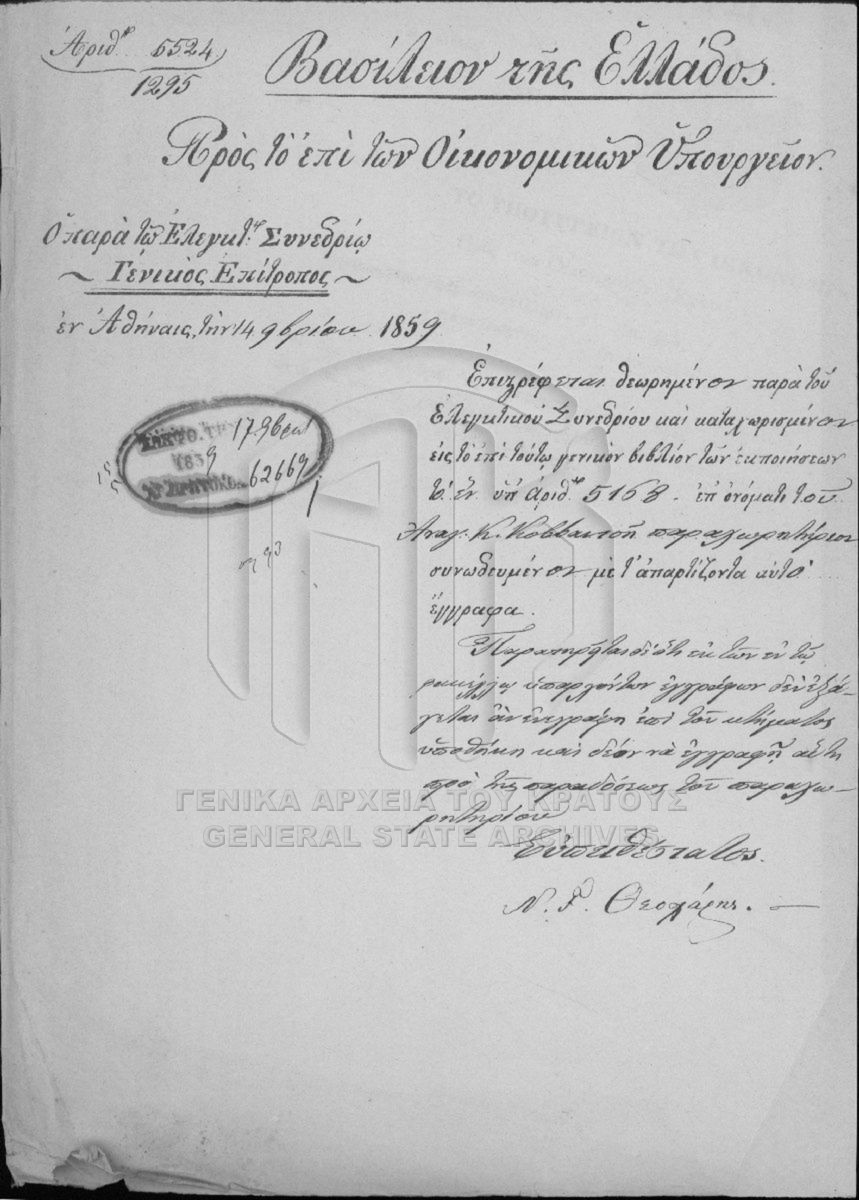 Ἀριθ. 5524
1295
Βασίλειον τῆς Ἑλλάδος.
Πρὸς τὸ ἐπὶ τῶν Οἰκονομικῶν Ὑπουργεῖον.
Ὁ παρὰ τῷ Ἐλεγκτ. Συνεδρίῳ
Γενικὸς Ἐπίτροπος
ἐν Ἀθήναις, τὴν 14 9βρίου 1859
Ἐπιστρέφεται θεωρημένον παρὰ τοῦ
Ἐλεγκτικοῦ Συνεδρίου καὶ καταχωρισμένον
εἰς τὸ ἐπὶ τούτῳ γενικὸν βιβλίον τῶν ἐκποιήσεων
τὸ ἐν ὑπ' ἀριθ. 5168 ἐπ' ὀνόματι τοῦ
Ἀναγ. Κ. παραχωρητήριον
συνωδευμένον μὲ τ' ἀπαρτίζοντα αὐτὸ
ἔγγραφα.
17 9βρίου
1859
62669
Παρατηρεῖται δὲ ὅτι ἐκ τῶν ἐν τῷ
φακέλλῳ ὑπαρχόντων ἐγγράφων δὲν ἐξά-
γεται ἂν ἐνεγράφη ἐπὶ τοῦ κτήματος
ὑποθήκη καὶ δέον νὰ ἐγγραφῇ αὕτη
πρὸ τῆς παραδόσεως τοῦ παραχω-
ρητηρίου
Εὐπειθέστατος.
Ν. Γ. Θεοχάρης.
ΓΕΝΙΚΑ ΑΡΧΕΙΑ ΤΟΥ ΚΡΑΤΟΥΣ
GENERAL STATE ARCHIVES